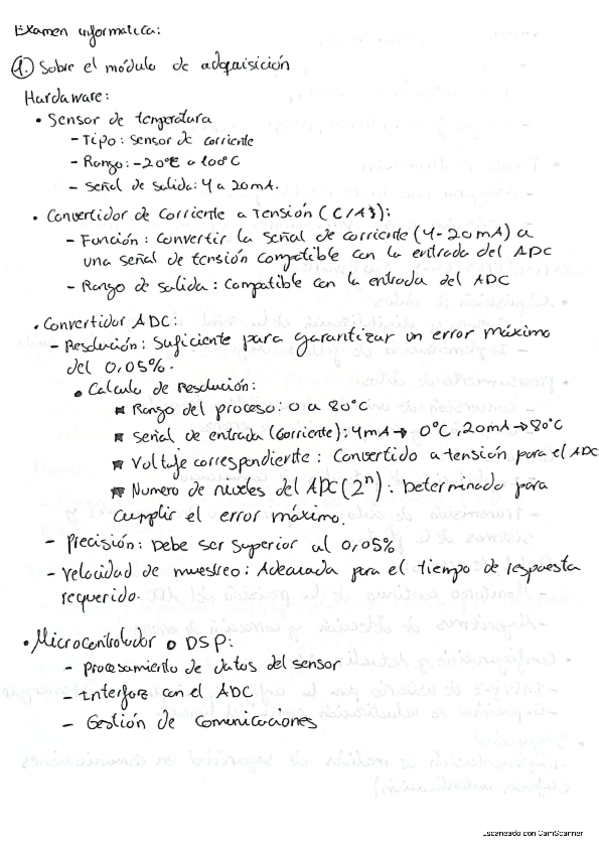 Examen informatica:
1. Sobre el módulo de adquisición
Hardaware:
• Sensor de temperatura
- Tipo: sensor de corriente
- Rango: -20°C a 100°C
- señal de salida: 4 a 20mA.
• Convertidor de Corriente a Tensión (C/A):
- Función: Convertir la señal de corriente (4-20mA) a
una señal de tensión compatible con la entrada del ADC
- Rango de salida: Compatible con la entrada del ADC
• Convertidor ADC:
- Resolución: Suficiente para garantizar un error máximo
del 0,05%.
• Calculo de resolución:
Rango del proceso: 0 a 80°C
señal de entrada (Corriente): 4mA → 0°C, 20mA → 80°C
Voltaje correspondiente: Convertido a tensión para el ADC
Numero de niveles del ADC (2^n): Determinado para
cumplir el error máximo.
- Precisión: Debe ser superior al 0,05%
- Velocidad de muestreo: Adecuada para el tiempo de respuesta
requerido.
• Microcontrolador o DSP:
- procesamiento de datos del sensor
- Interfaz con el ADC
- Gestión de Comunicaciones
Escaneado con CamScanner